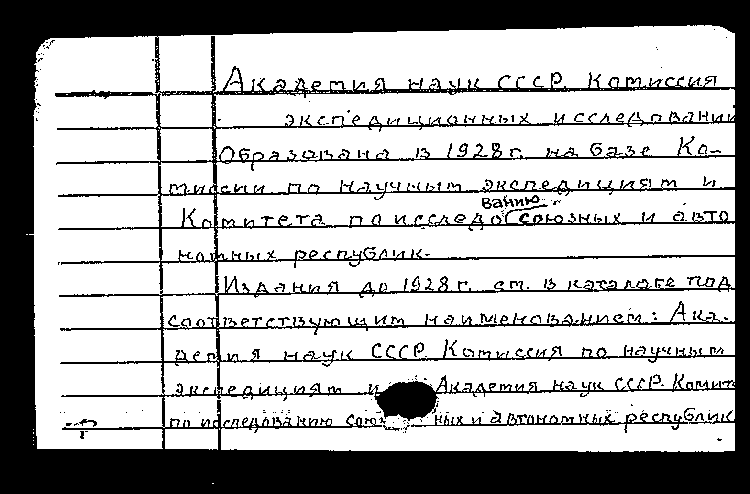 Академия наук СССР. Комиссия
экспедиционных исследований
Образована в 1928 г. на базе Ко-
миссии по научным экспедициям и
ванию
Комитета по исследо союзных и авто
номных республик.
Издания до 1928 г. см. в каталоге под
соответствующим наименованием: Ака-
демия наук СССР. Комиссия по научным
экспедициям и Академия наук СССР. Комит
по исследованию союз ных и автономных республик